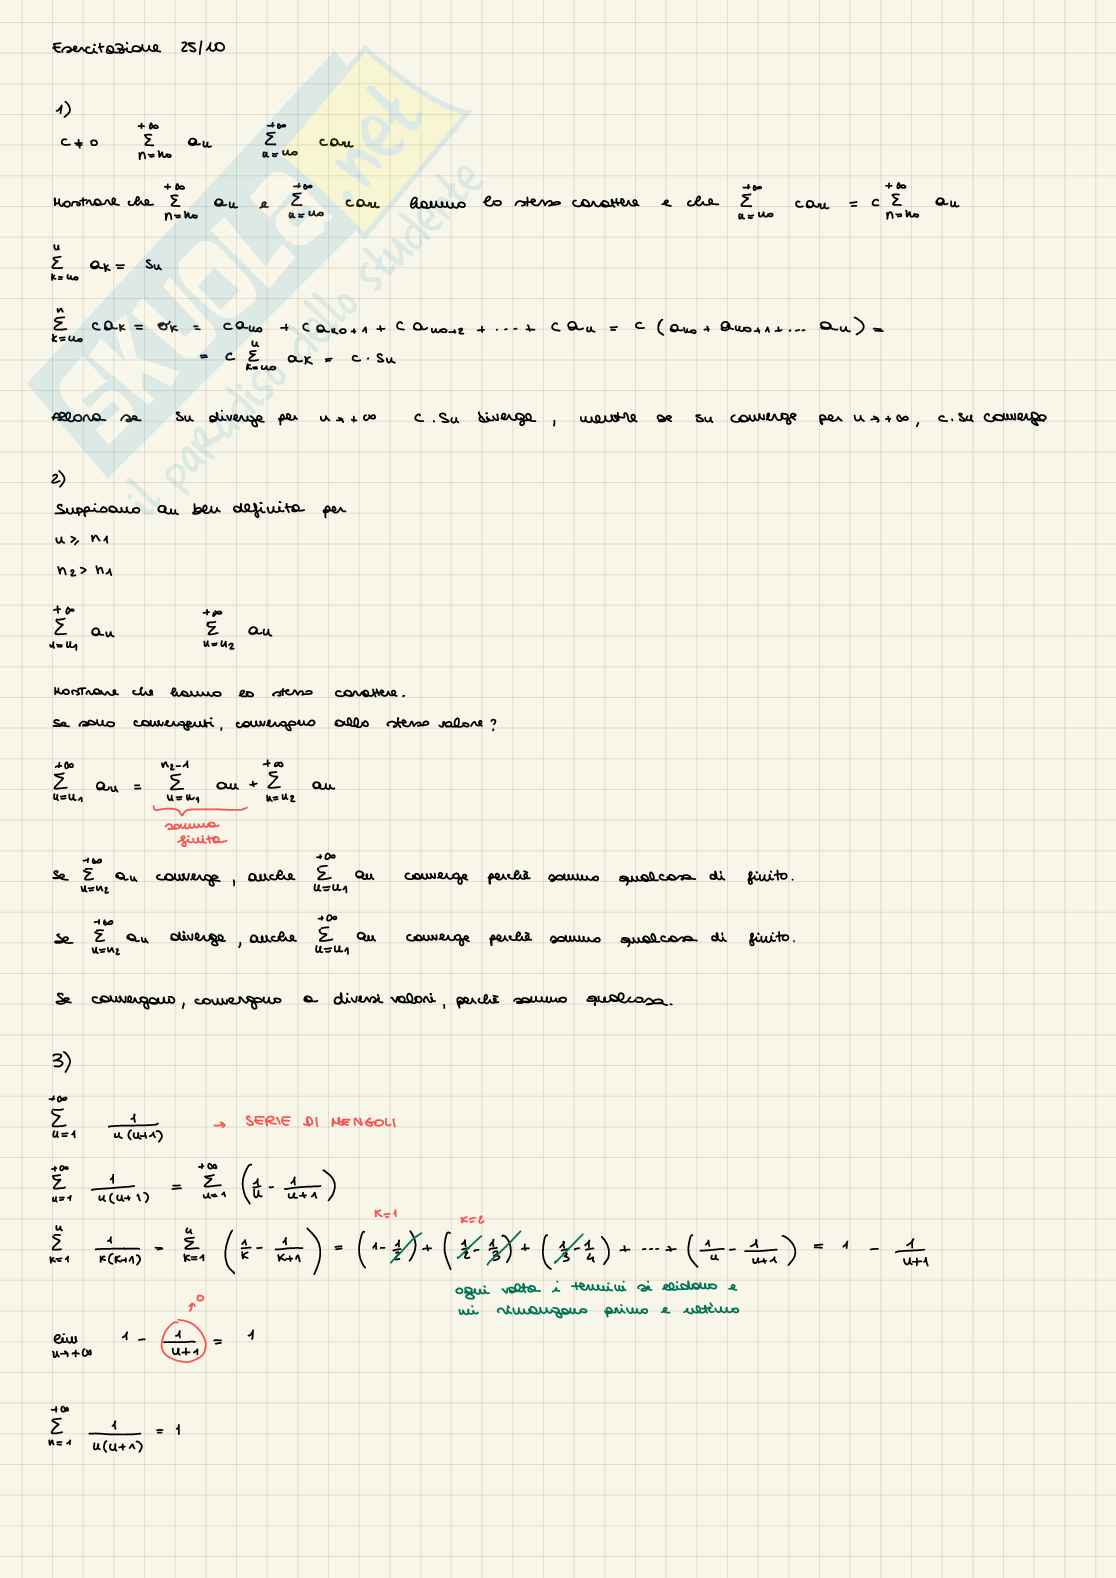 Esercitazione 25/10
1)
c≠0 +∞ Σ n=n₀ aₙ +∞ Σ n=n₀ caₙ
Mostrare che +∞ Σ n=n₀ aₙ e +∞ Σ n=n₀ caₙ hanno lo stesso carattere e che +∞ Σ n=n₀ caₙ = c +∞ Σ n=n₀ aₙ
n Σ k=n₀ aₖ = Sₙ
n Σ k=n₀ c aₖ = σₖ = caₙ₀ + c aₙ₀₊₁ + c aₙ₀₊₂ + ... + c aₙ = c (aₙ₀ + aₙ₀₊₁ + ... aₙ) =
= c n Σ k=n₀ aₖ = c · Sₙ
Allora se Sₙ diverge per n→+∞ c · Sₙ diverge, mentre se Sₙ converge per n→+∞, c · Sₙ converge
2)
Supponiamo aₙ ben definita per
n ≥ n₁
n₂ > n₁
+∞ Σ n=n₁ aₙ +∞ Σ n=n₂ aₙ
Mostrare che hanno lo stesso carattere.
Se sono convergenti, convergono allo stesso valore?
+∞ Σ n=n₁ aₙ = n₂-1 Σ n=n₁ aₙ + +∞ Σ n=n₂ aₙ
somma
finita
Se +∞ Σ n=n₂ aₙ converge, anche +∞ Σ n=n₁ aₙ converge perchè sommo qualcosa di finito.
Se +∞ Σ n=n₂ aₙ diverge, anche +∞ Σ n=n₁ aₙ converge perchè sommo qualcosa di finito.
Se convergono, convergono a diversi valori, perchè sommo qualcosa.
3)
+∞ Σ n=1 1/n(n+1) → SERIE DI MENGOLI
+∞ Σ n=1 1/n(n+1) = +∞ Σ n=1 (1/n - 1/n+1)
k=1 k=2
n Σ k=1 1/k(k+1) = n Σ k=1 (1/k - 1/k+1) = (1 - 1/2) + (1/2 - 1/3) + (1/3 - 1/4) + ... + (1/n - 1/n+1) = 1 - 1/n+1
ogni volta i termini si elidono e
mi rimangono primo e ultimo
→0
lim n→+∞ 1 - 1/n+1 = 1
+∞ Σ n=1 1/n(n+1) = 1
SKUOLA.net
il paradiso dello studente